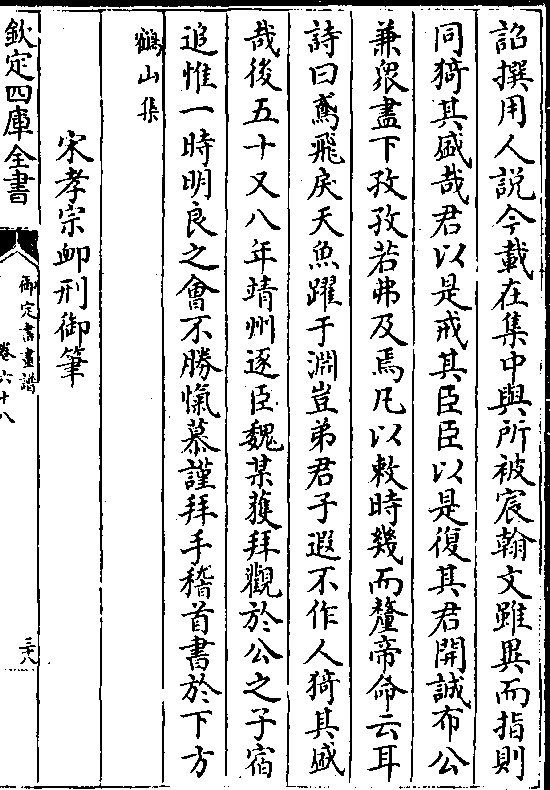 詔撰用人說今載在集中與所被宸翰文雖異而指則
同猗其盛哉君以是戒其臣臣以是復其君開誠布公
兼衆盡下孜孜若弗及焉凡以敕時幾而釐帝命云耳
詩曰鳶飛戾天魚躍于淵豈弟君子遐不作人猗其盛
哉後五十又八年靖州逐臣魏某獲拜觀於公之子宿
追惟一時明良之會不勝愾慕謹拜手稽首書於下方
鶴山集
宋孝宗卹刑御筆
欽定四庫全書
御定書畫譜
卷六十八
三十八